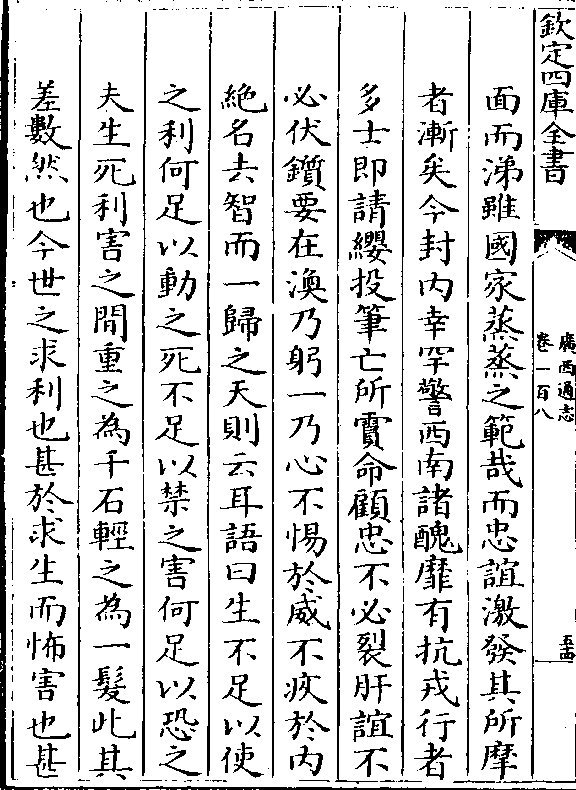 欽定四庫全書
廣西通志
卷一百八
五十四
面而涕雖國家蒸蒸之範哉而忠誼激發其所摩
者漸矣今封内幸罕警西南諸醜靡有抗戎行者
多士即請纓投筆亡所賣命顧忠不必裂肝誼不
必伏鑕要在渙乃躬一乃心不惕於威不疚於内
絶名去智而一歸之天則云耳語曰生不足以使
之利何足以動之死不足以禁之害何足以恐之
夫生死利害之間重之為千石輕之為一髮此其
差數然也今世之求利也甚於求生而怖害也甚